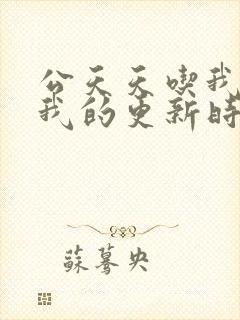 公天天喫我
我的更新時
蘇驀央